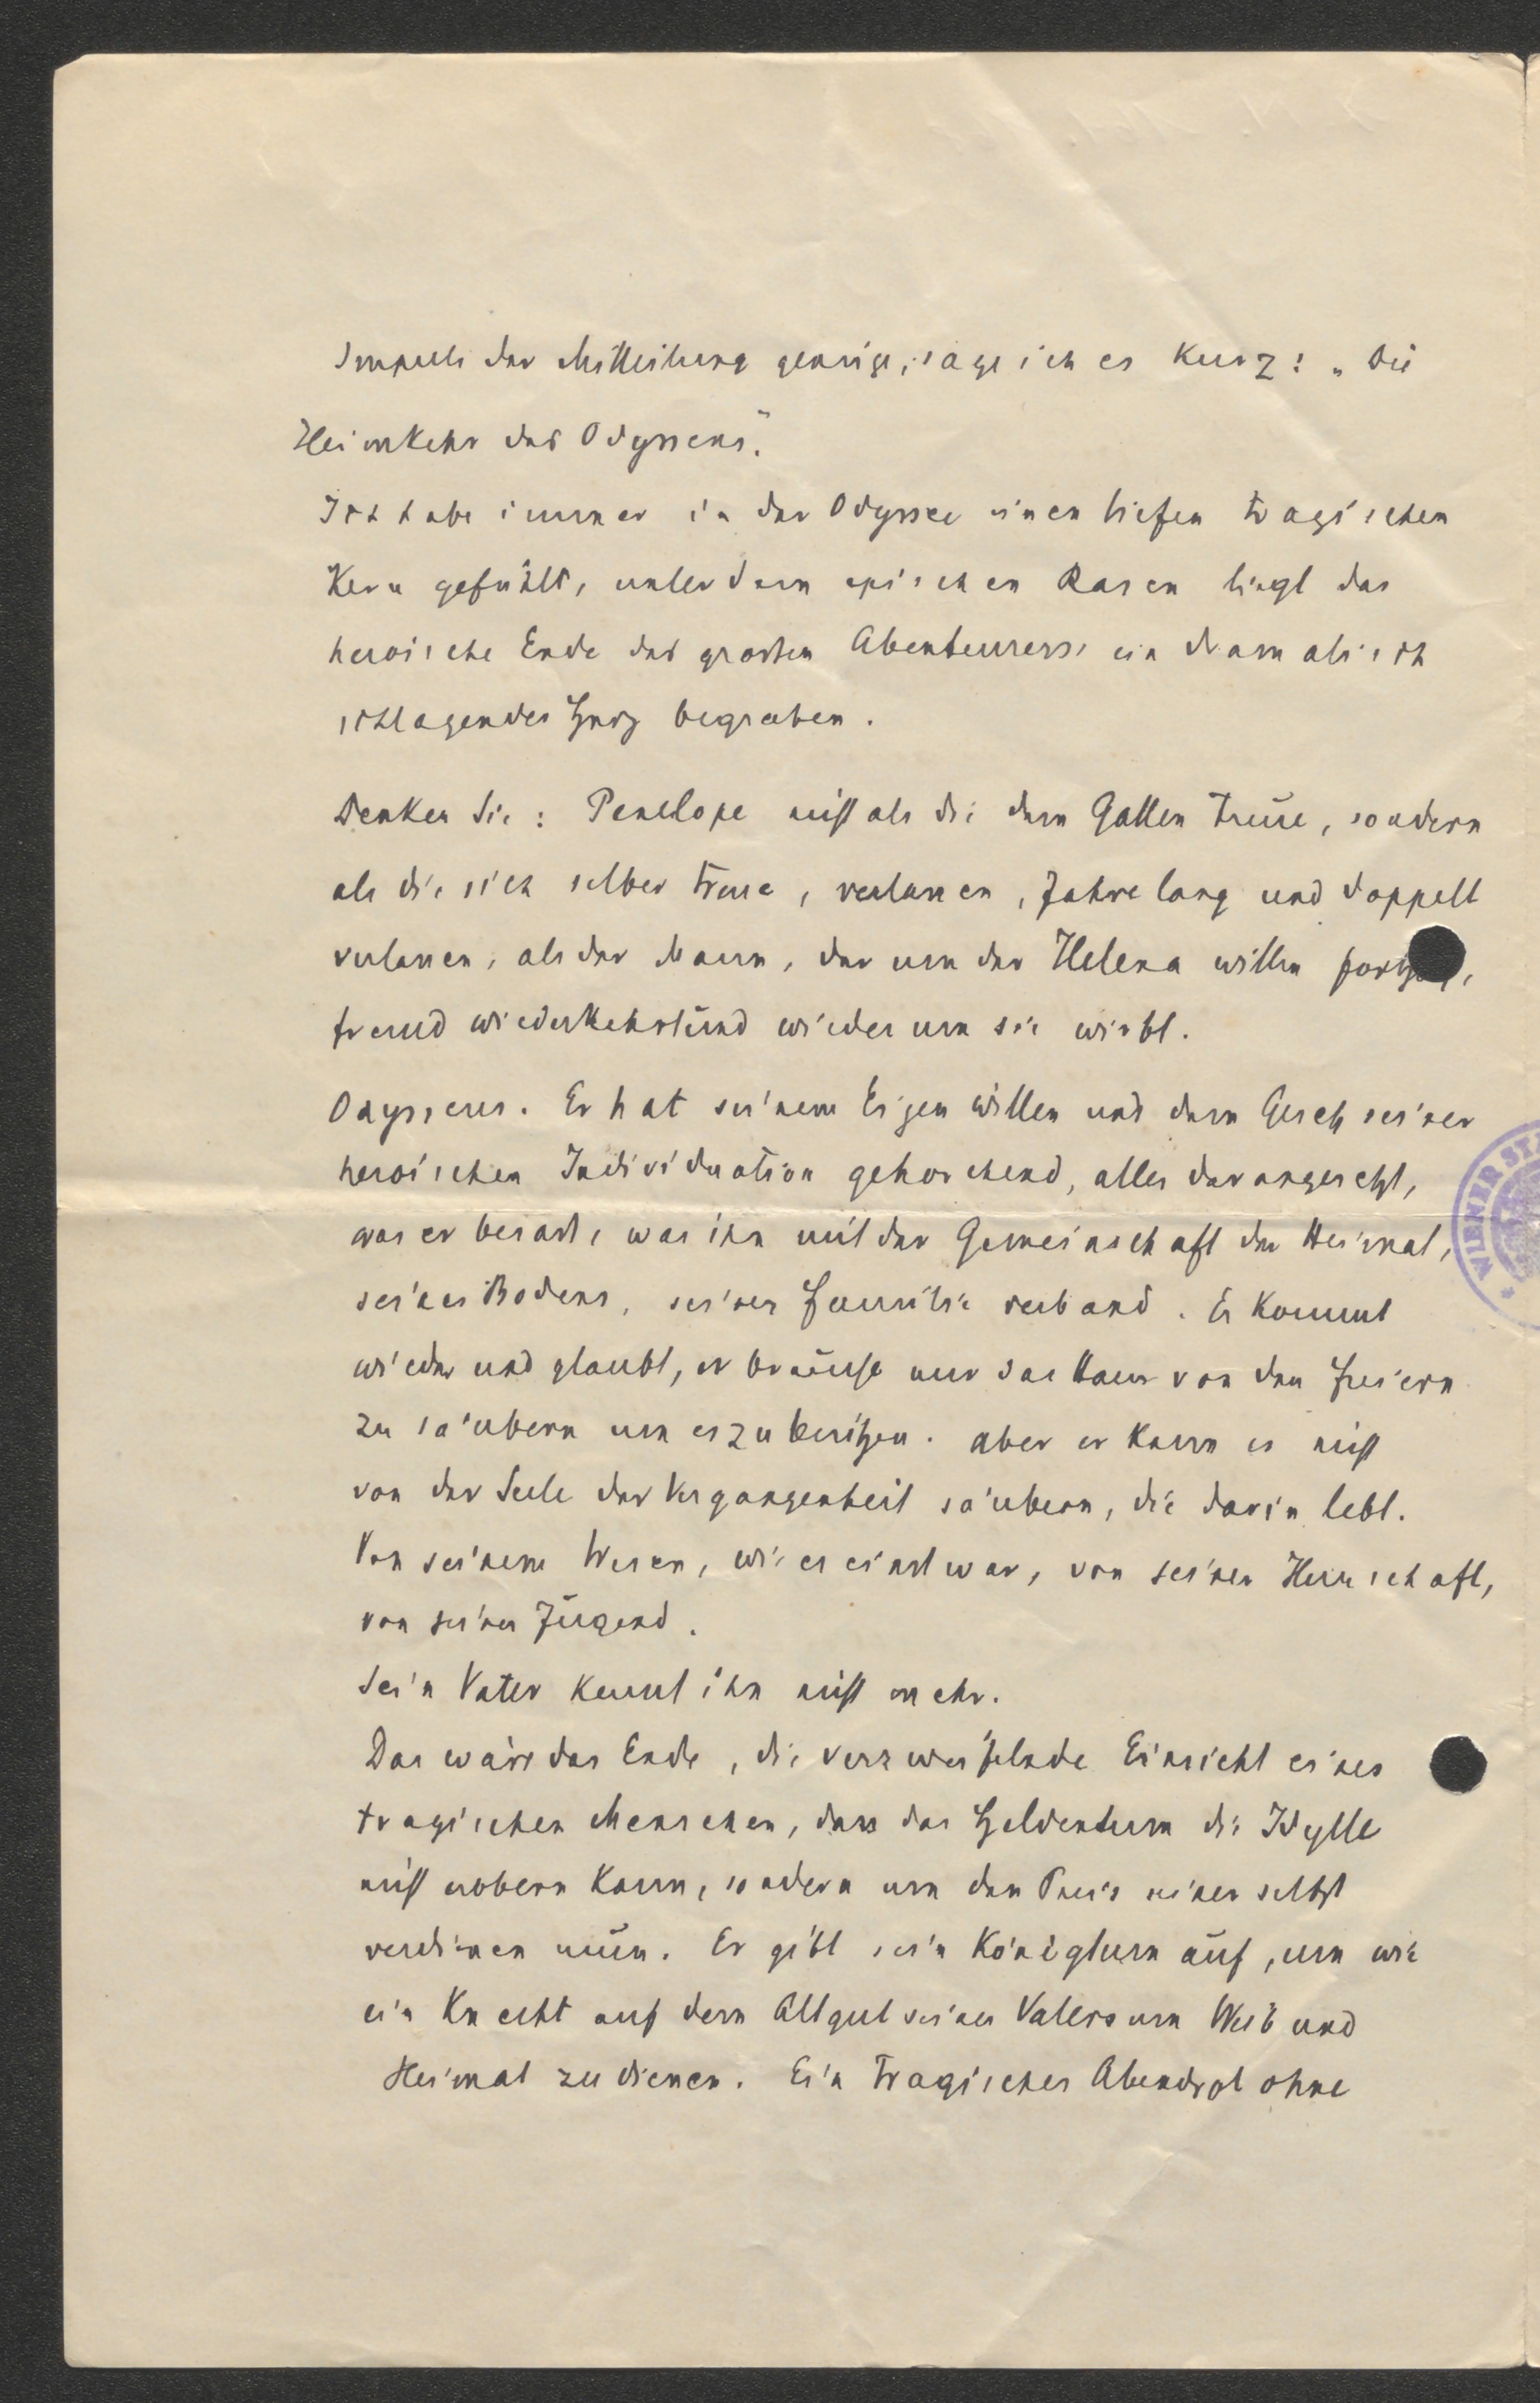 Impuls der Mitteilung genüge, sage ich es kurz: „Die
Heimkehr des Odysseus".
Ich habe immer in der Odyssee einen tiefen tragischen
Kern gefühlt, unter dem epischen Rasen liegt das
heroische Ende des grossen Abenteurers, ein dramatisch
schlagendes Herz begraben.
Denken Sie: Penelope nicht als die dem Gatten treue, sondern
als die sich selber treue, verlassen, Jahre lang und doppelt
verlassen, als der Mann, der um der Helena willen
fremd wiederkehrt und wieder um sie wirbt.
Odysseus. Er hat seinem Eigenwillen und dem Gesetz seiner
heroischen Individuation gehorchend, alles darangesetzt,
was er besass, was ihn mit der Gemeinschaft der Heimat,
seines Bodens, seiner Familie verband. Er kommt
wieder und glaubt, er brauche nur das Haus von den Freiern
zu säubern um es zu besitzen. Aber er kann es nicht
von der Seele der Vergangenheit säubern, die darin lebt.
Von seinem Wesen, wie es einst war, von seiner Herrschaft,
von seiner Jugend.
Sein Vater kennt ihn nicht mehr.
Das wäre das Ende, die verzweifelnde Einsicht eines
tragischen Menschen, dass das Heldentum die Idylle
nicht erobern kann, sondern um den Preis seiner selbst
verdienen muss. Er gibt sein Königtum auf, um wie
ein Knecht auf dem Altgut seines Vaters um Weib und
Heimat zu dienen. Ein tragisches Abendrot ohne
WIENER ST